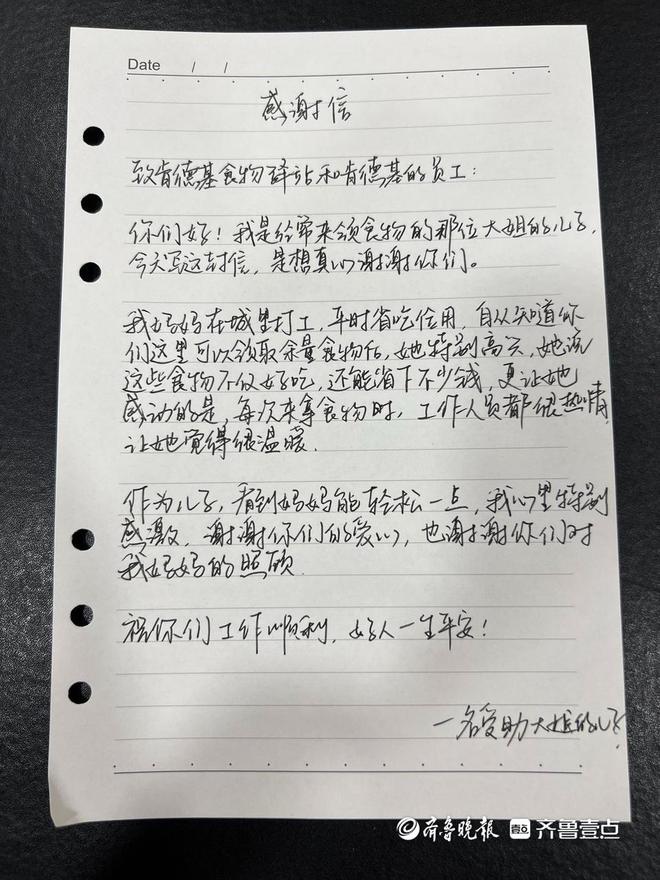 Date / /
感谢信
致肯德基食物驿站和肯德基的员工：
你们好！我是经常来领食物的那位大姐的儿子，
今天写这封信，是想真心谢谢你们。
我妈妈在城里打工，平时省吃俭用，自从知道你
们这里可以领取余量食物后，她特别高兴，她说
这些食物不仅好吃，还能省下不少钱，更让她
感动的是，每次来拿食物时，工作人员都很热情，
让她觉得很温暖.
作为儿子，看到妈妈能轻松一点，我心里特别
感激，谢谢你们的爱心，也谢谢你们对
我妈妈的照顾.
祝你们工作顺利，好人一生平安！
一名受助大姐的儿子
齐鲁晚报 壹点 齐鲁壹点